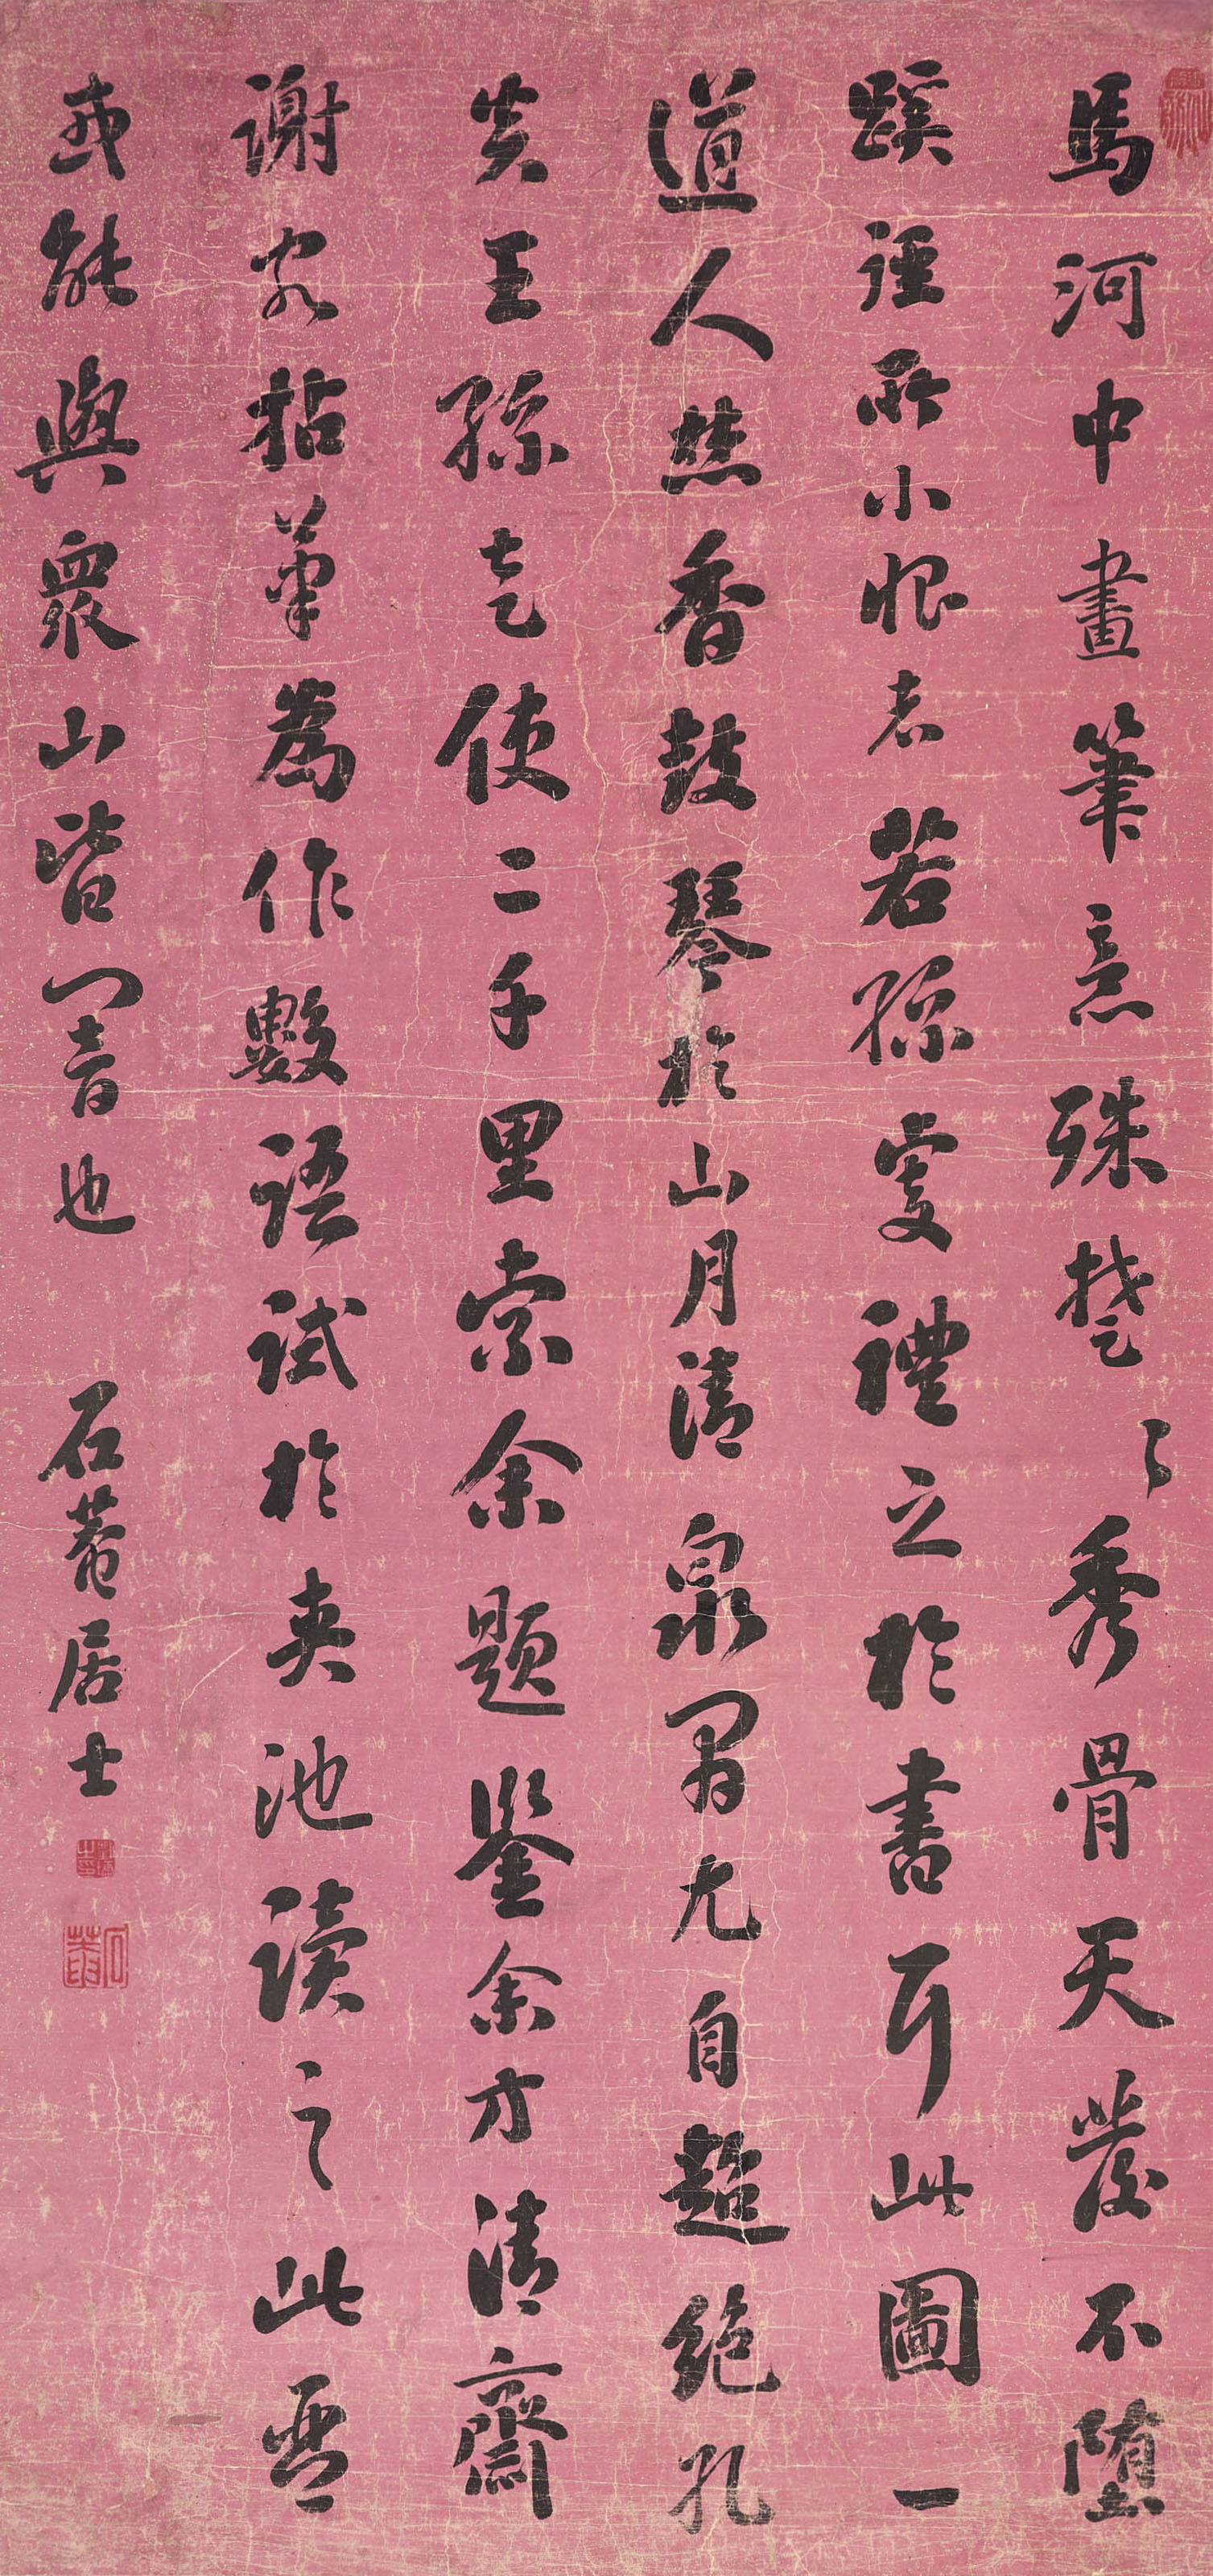 馬河中畫筆意殊楚〻秀骨天發不墮
蹊徑所小恨者若孫虔禮之於書耳此圖一
道人焚香鼓琴於山月清泉間尤自超絕孔
炎王孫乞使二千里索余題鑒余方清齋
謝客拈筆為作數語試於夾池讀之此雪
或能與衆山皆響也
石菴居士
石菴